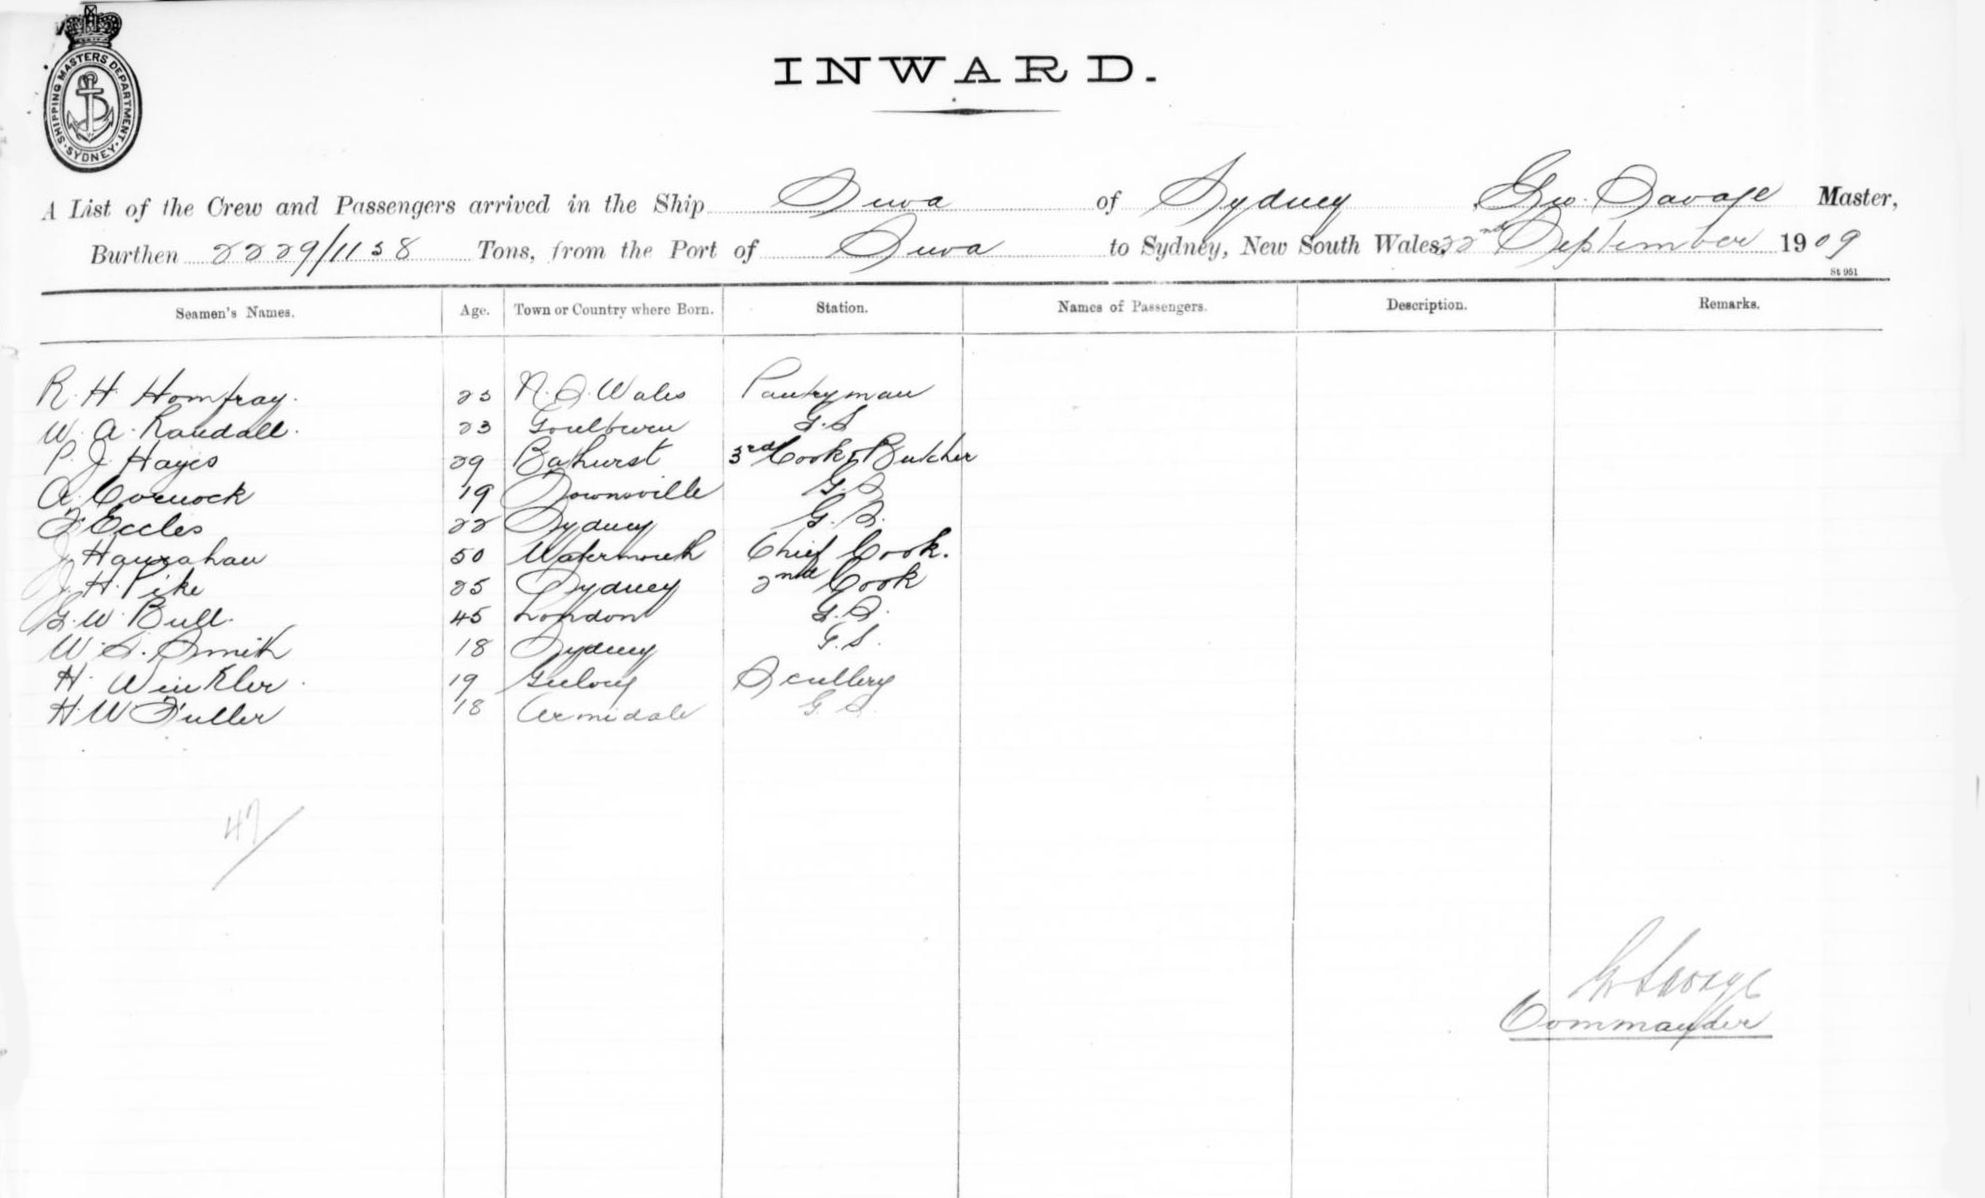 SHIPPING MASTERS DEPARTMENT
SYDNEY
INWARD.
A List of the Crew and Passengers arrived in the Ship Suva of Sydney, Geo. Savage Master,
Burthen 2229/1138 Tons, from the Port of Suva to Sydney, New South Wales, 22nd September 1909
St 951
Seamen's Names. Age. Town or Country where Born. Station. Names of Passengers. Description. Remarks.
R. H. Homfray. 23 N. S. Wales Pantryman
W. A. Randall. 23 Goulburn G.S
P. J. Hayes 29 Bathurst 3rd Cook & Butcher
A. Cornock 19 Townsville G.S
F. Eccles 22 Sydney G.S.
J Hanrahan 50 Chief Cook.
J. H. Pike 25 Sydney 2nd Cook
G. W. Bull. 45 London G.S.
W. S. Smith 18 Sydney G.S.
H. Winkler. 19 Scullery
H W Fuller 18 Armidale G S.
47
G Savage
Commander